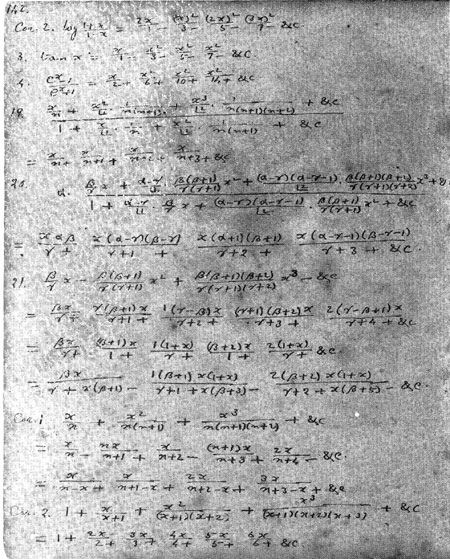 142.
Cor. 2. log (1+x)/(1-x) = 2x/1 - (x)²/3 - (2x)²/5 - (3x)²/7 - &c
3. tan x = x/1 - x²/3 - x²/5 - x²/7 - &c
4. (e^x - 1)/(e^x + 1) = x/2 + x²/6 + x²/10 + x²/14 + &c
x/n + x²/⌊1 · 1/n(n+1) + x³/⌊2 · 1/n(n+1)(n+2) + &c
1 + x/⌊1 · 1/n + x²/⌊2 · 1/n(n+1) + &c
= x/n + x/n+1 + x/n+2 + x/n+3 + &c
20.
= xαβ/γ + x(α-γ)(β-γ)/γ+1 + x(α+1)(β+1)/γ+2 + x(α-γ-1)(β-γ-1)/γ+3 + &c.
21. β/γ x - β(β+1)/γ(γ+1) x² + β(β+1)(β+2)/γ(γ+1)(γ+2) x³ - &c
= βx/γ + γ(β+1)x/γ+1 + 1(γ-β)x/γ+2 + (γ+1)(β+2)x/γ+3 + 2(γ-β+1)x/γ+4 + &c
= βx/γ + (β+1)x/1 + 1(1+x)/γ + (β+2)x/1 + 2(1+x)/γ + &c.
= βx/γ + x(β+1) - 1(β+1)x(1+x)/γ+1+x(β+3) - 2(β+2)x(1+x)/γ+2+x(β+5) - &c.
Cor. 1 x/n + x²/n(n+1) + x³/n(n+1)(n+2) + &c
= x/n - nx/n+1 + x/n+2 - (n+1)x/n+3 + 2x/n+4 - &c.
= x/n-x + x/n+1-x + 2x/n+2-x + 3x/n+3-x + &c
Cor. 2. 1 + x/x+1 + x²/(x+1)(x+2) + x³/(x+1)(x+2)(x+3) + &c
= 1 + 2x/2 + 3x/3 + 4x/4 + 5x/5 + 6x/6 + &c.